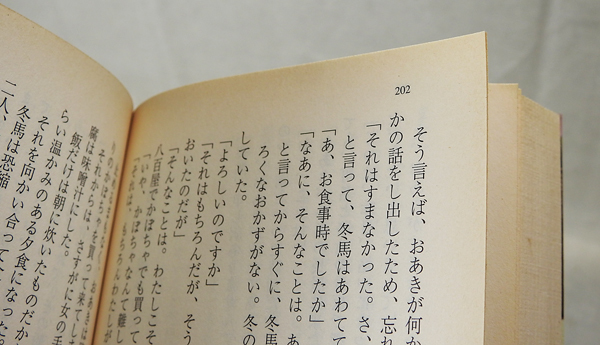 202
そう言えば、おあきが何か
かの話をし出したため、忘れ
「それはすまなかった。さ、
と言って、冬馬はあわてて
「あ、お食事時でしたか」
「なあに、そんなことは。あ
と言ってからすぐに、冬馬
ろくなおかずがない。冬の
していた。
「よろしいのですか」
「それはもちろんだが、そう
おいたのだが」
「そんなことは。わたしこそ
八百屋でかぼちゃでも買って
「いや、かぼちゃなんて難し
「それは、もちろんわたしが
それからは、を買って、おあきは
腐は味噌汁にした。
飯だけは朝に炊いたものだか
らい温かみのある夕食になった。
それを向かい合って
冬馬は恐縮
二人、